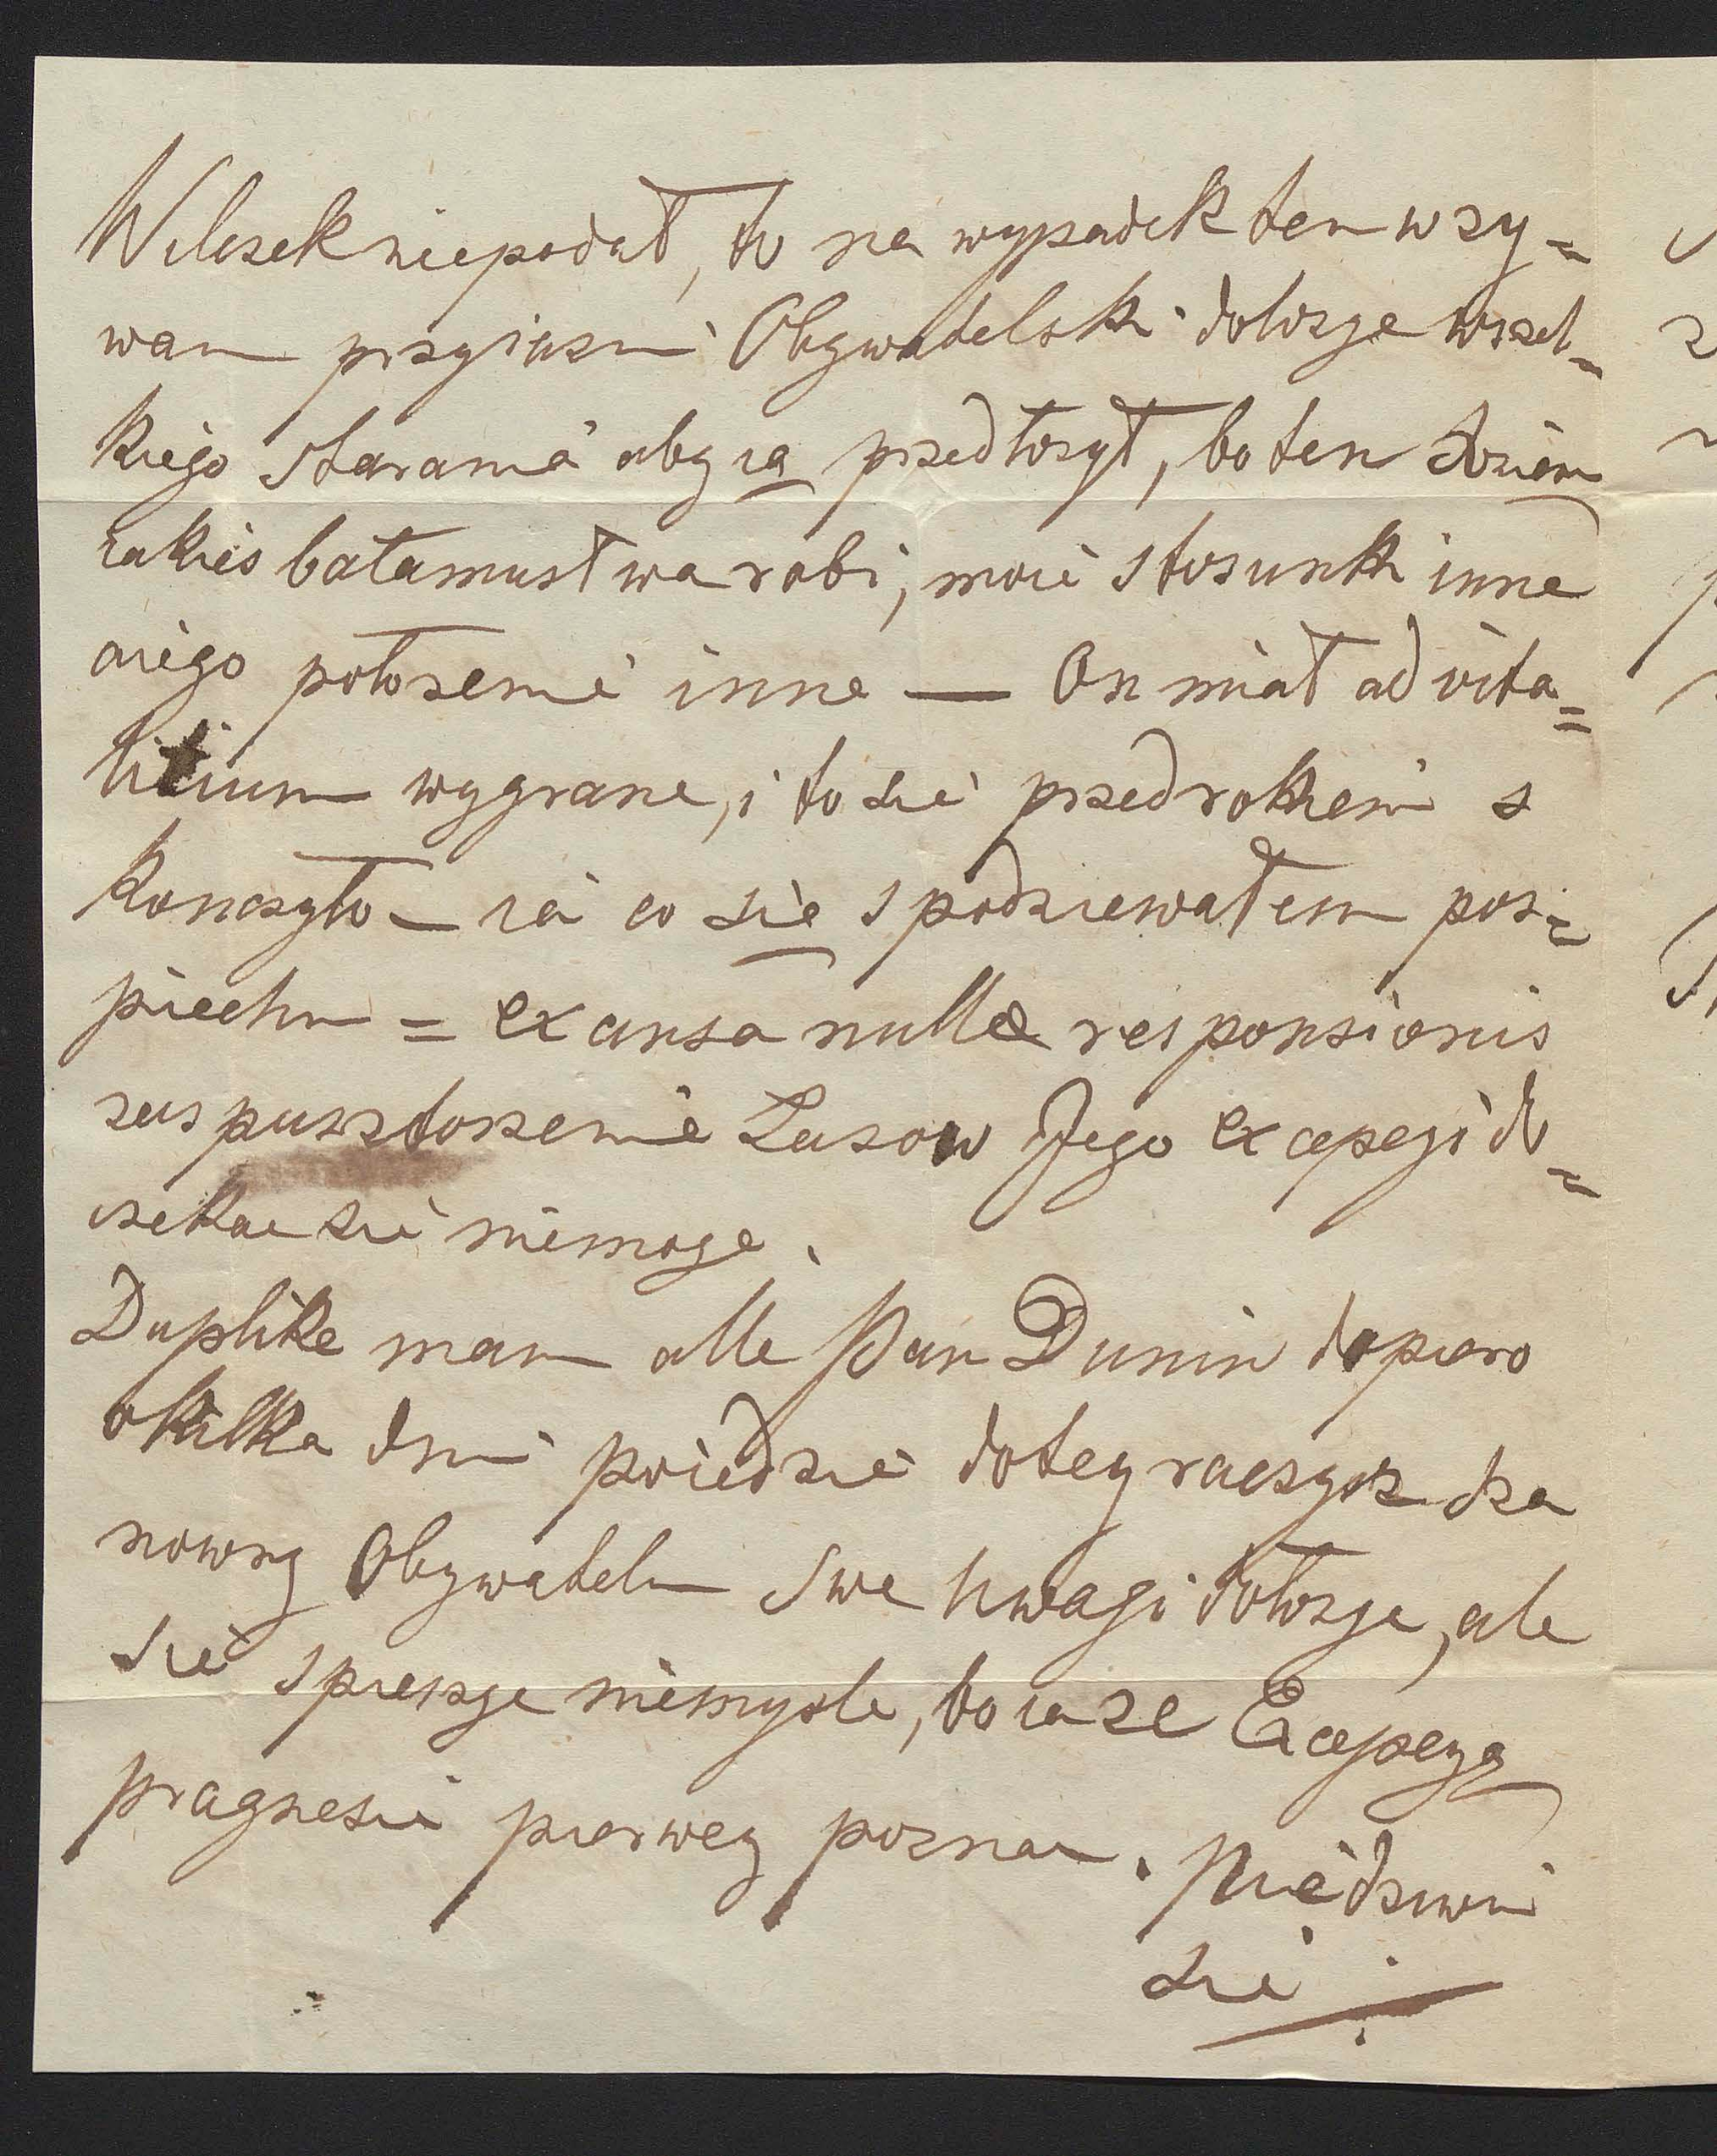 Wilczek niepodał, to na wypadek ten wzy=
wam przyiazni Obywatelski dołozye wszel=
kiego starania aby ią przedłozył, bo ten
iakies bałamustwa robi, moie stosunki inne
aiego połozenie inne — On miał ad vita=
litium wygrane, i to sie przed rokiem s
konczyło — ia co się spodziewałem pos=
piechu = ex causa nullæ responsionis
zas pusztoszenie Lasow Jego excepcyi do=
czekac sie niemoge.
Duplike mam alle Pan Dunin dopiero
okilka dni poiedzie dotey raczysz sza
nowny Obywatelu swe uwagi dołozye, ale
sie spieszye niemysle, bo ia ze Excepcyą
pragnesie pierwey poznac. Niedziwui
sie